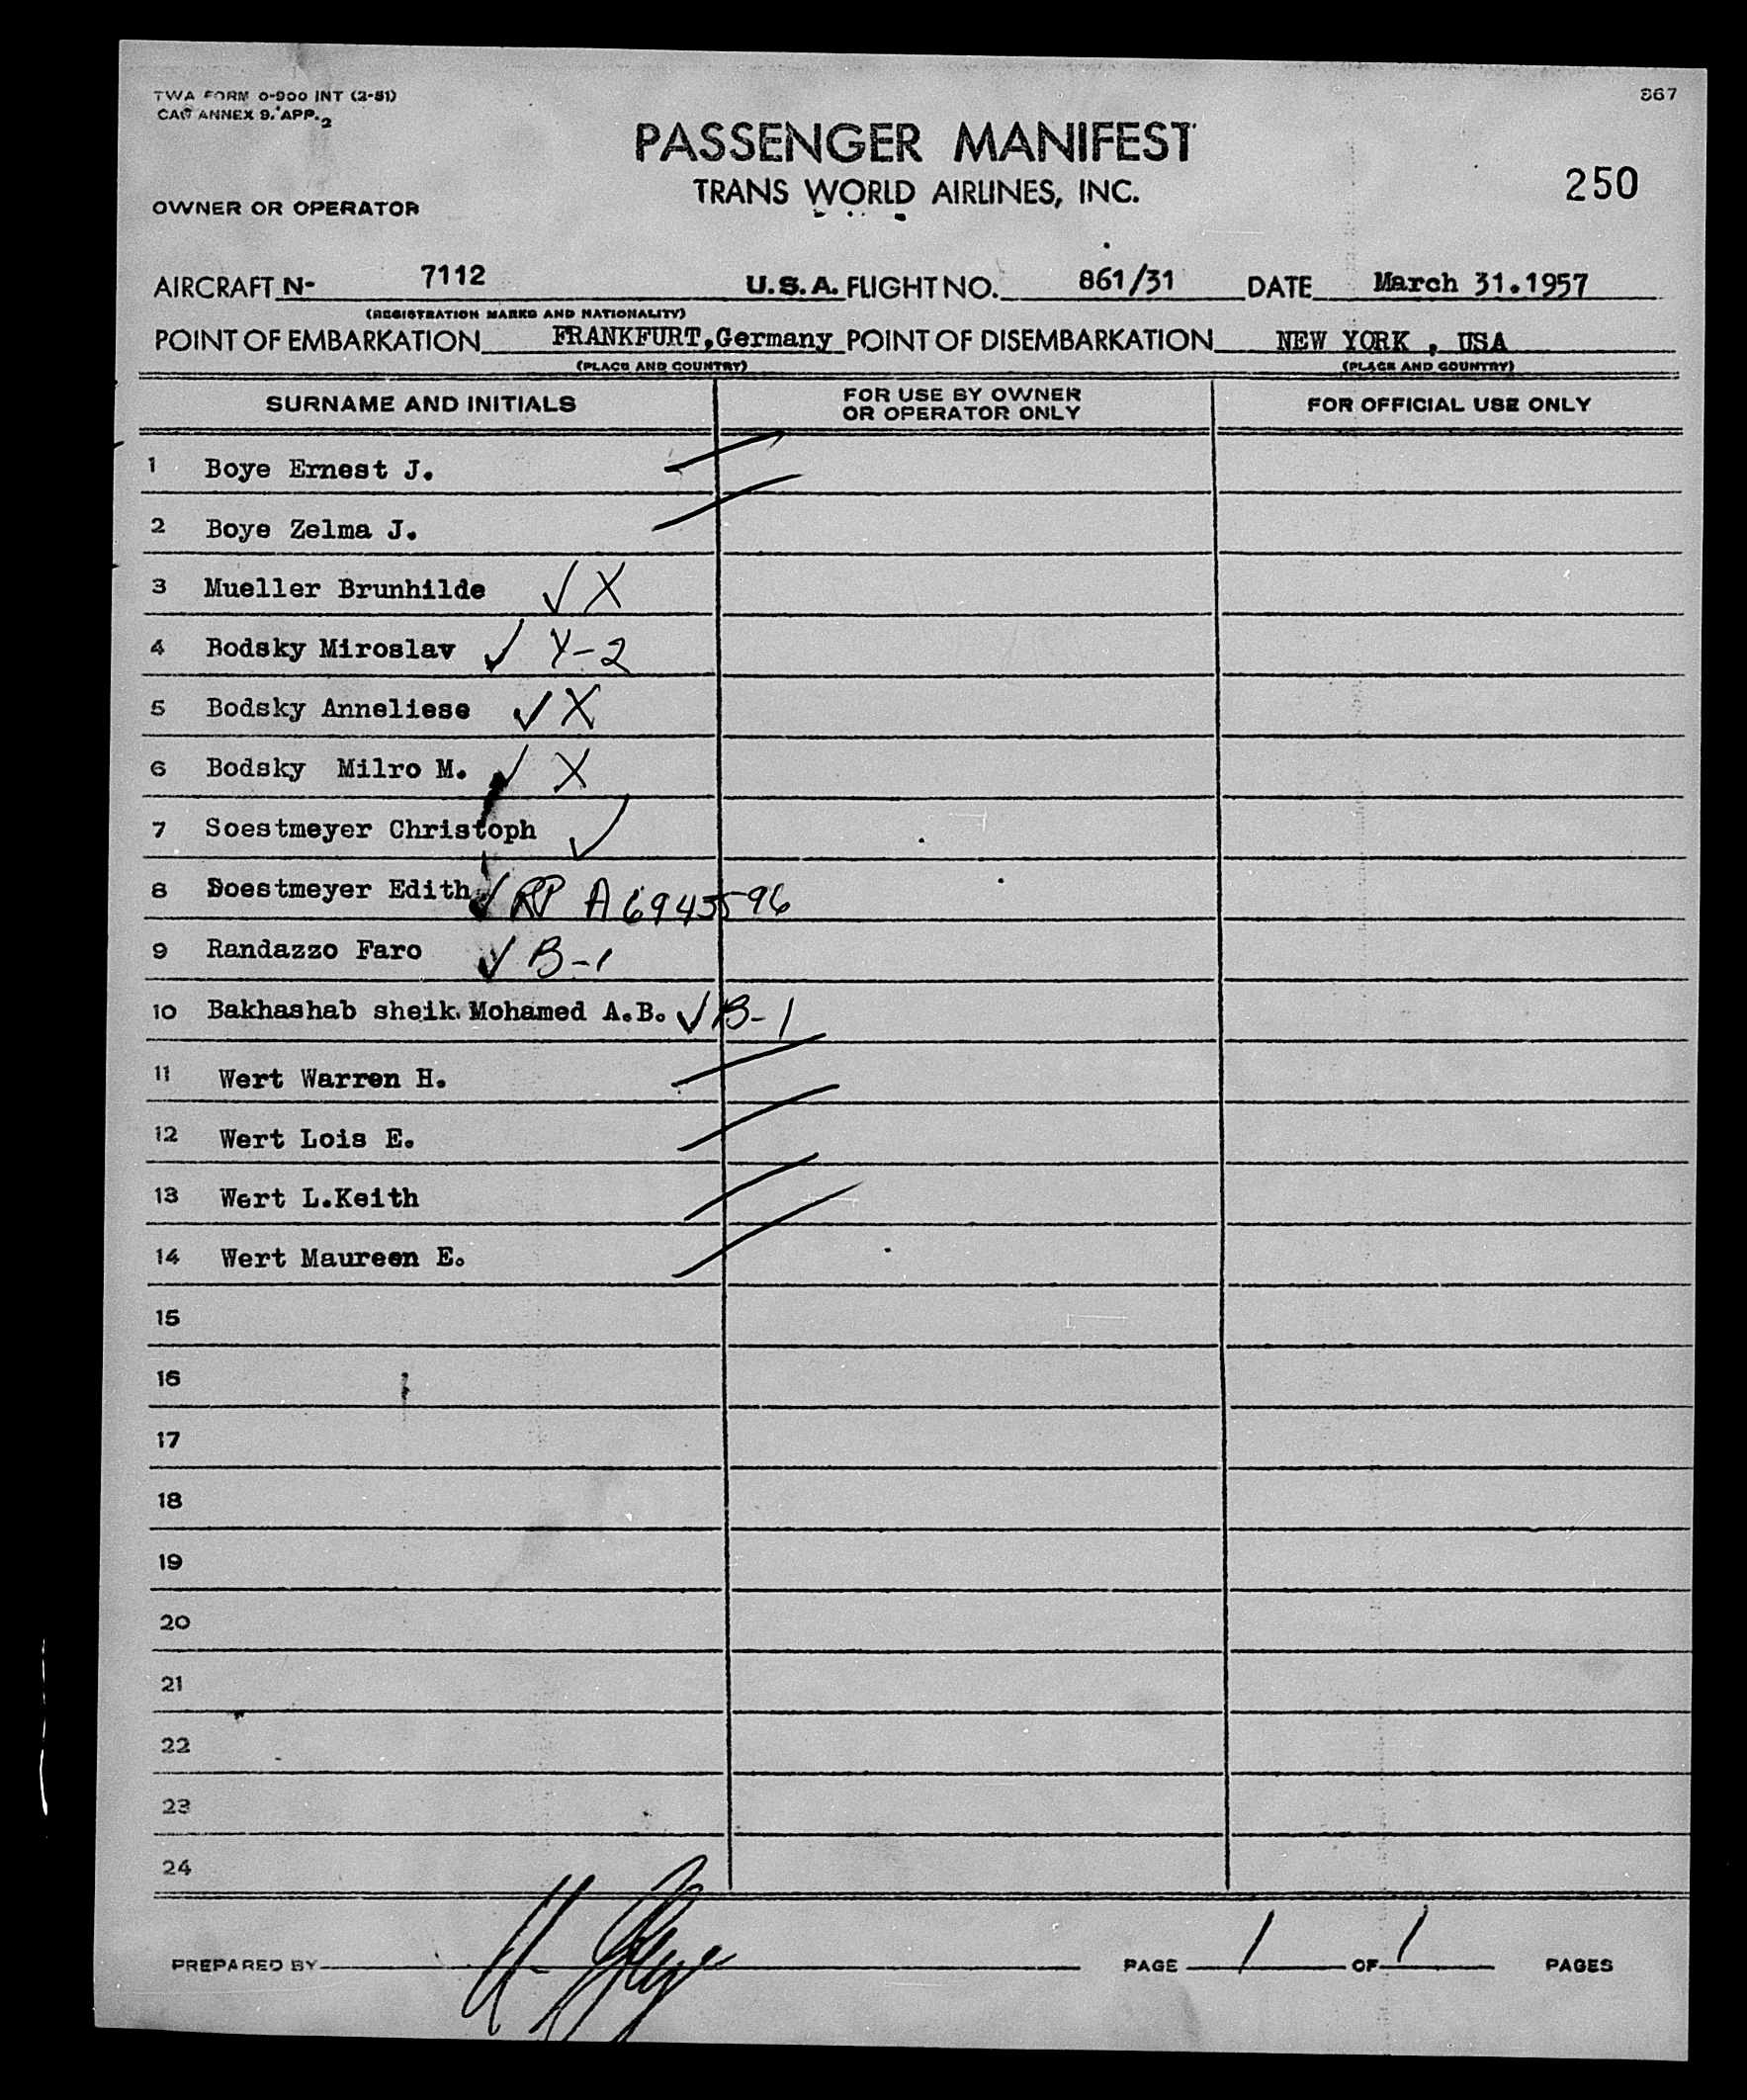 TWA FORM 0-900 INT (2-51)
867
CAO ANNEX 9. APP. 2
PASSENGER MANIFEST
TRANS WORLD AIRLINES, INC.
250
OWNER OR OPERATOR
AIRCRAFT N- 7112 U.S.A. FLIGHT NO. 861/31 DATE March 31.1957
(REGISTRATION MARKS AND NATIONALITY)
POINT OF EMBARKATION FRANKFURT,Germany POINT OF DISEMBARKATION NEW YORK , USA
(PLACE AND COUNTRY) (PLACE AND COUNTRY)
SURNAME AND INITIALS
FOR USE BY OWNER
OR OPERATOR ONLY
FOR OFFICIAL USE ONLY
1 Boye Ernest J.
2 Boye Zelma J.
3 Mueller Brunhilde ✓ X
4 Bodsky Miroslav ✓ Y-2
5 Bodsky Anneliese ✓ X
6 Bodsky Milro M. ✓ X
7 Soestmeyer Christoph ✓
8 Soestmeyer Edith ✓ RP A6943596
9 Randazzo Faro ✓ B-1
10 Bakhashab sheik Mohamed A.B. ✓ B-1
11 Wert Warren H.
12 Wert Lois E.
13 Wert L.Keith
14 Wert Maureen E.
15
16
17
18
19
20
21
22
23
24
PREPARED BY
PAGE 1 OF 1 PAGES